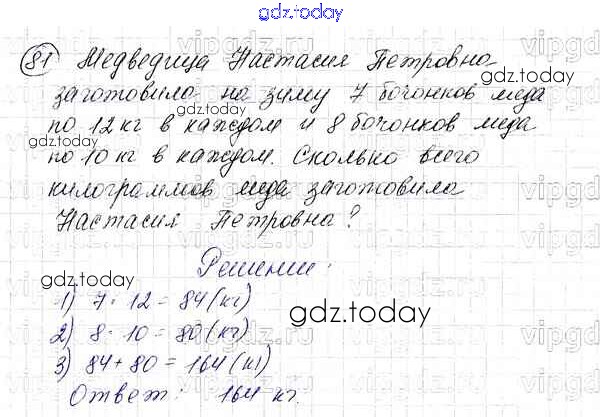 gdz.today
81) Медведица Настасия Петровна
gdz.today
заготовила на зиму 7 бочонков меда
gdz.today
по 12 кг в каждом и 8 бочонков меда
по 10 кг в каждом. Сколько всего
килограммов меда заготовила
Настасия Петровна?
Решение:
gdz.today
1) 7 · 12 = 84 (кг)
gdz.today
2) 8 · 10 = 80 (кг)
3) 84 + 80 = 164 (кг)
Ответ: 164 кг.